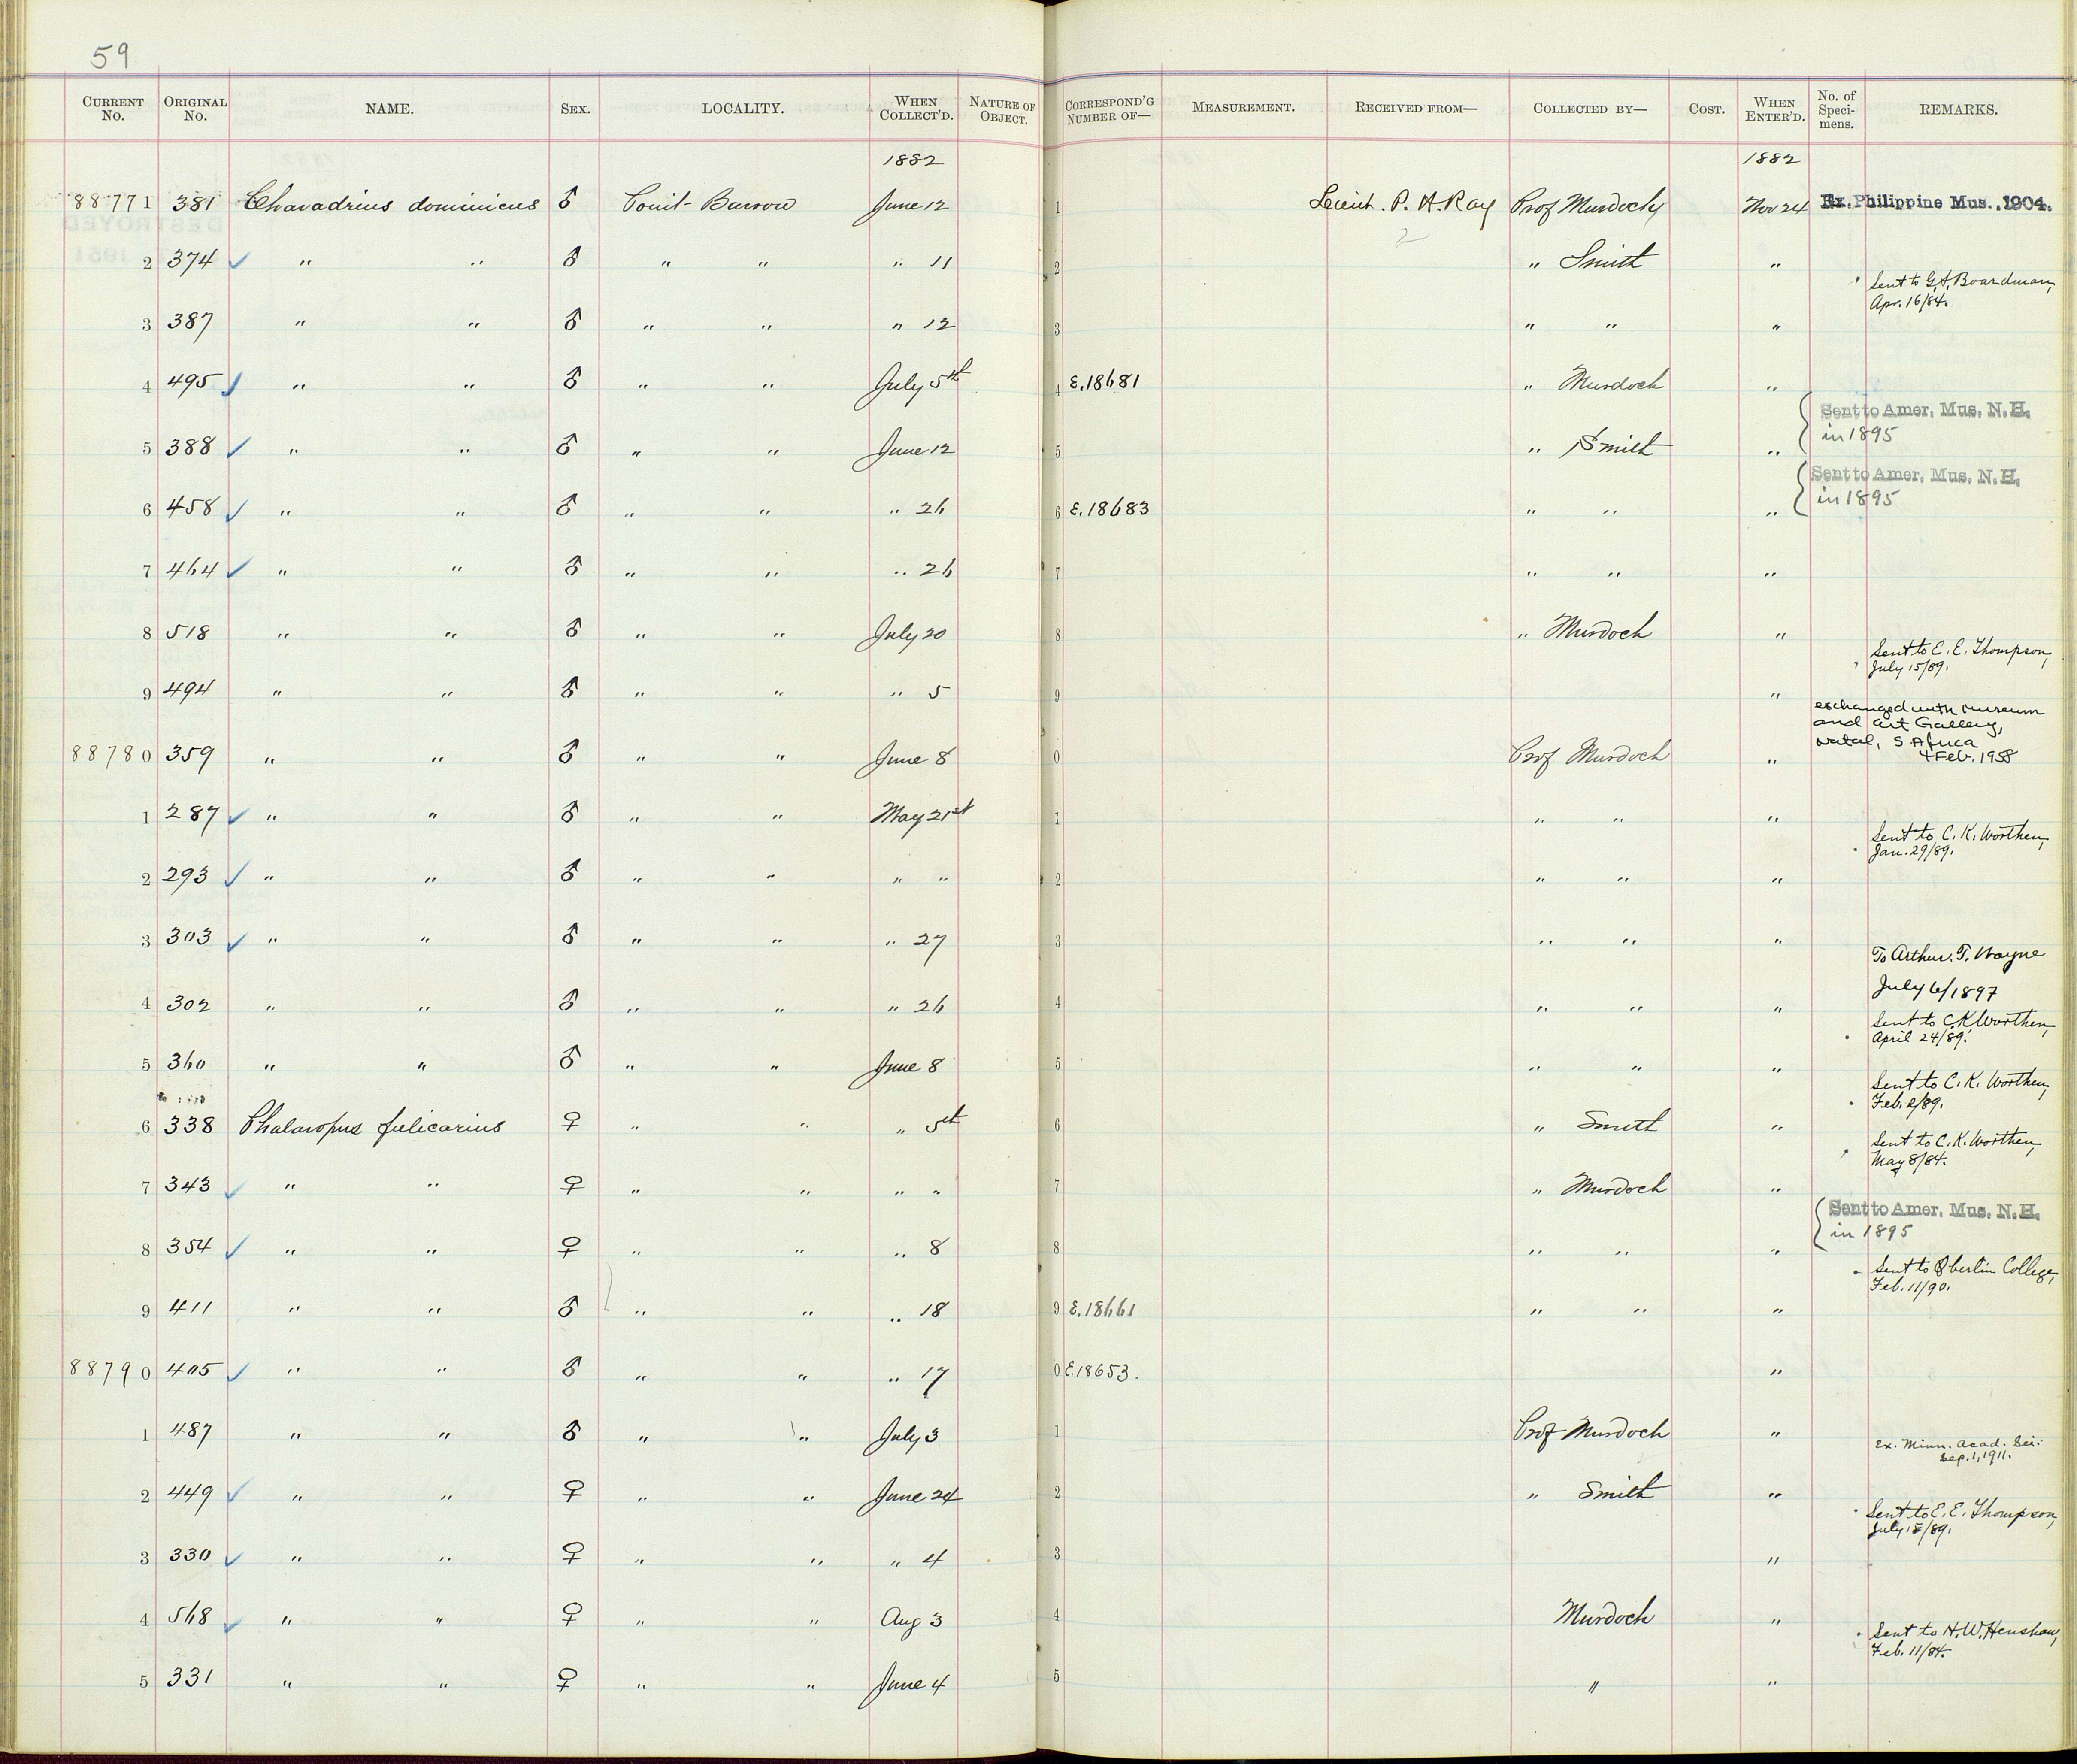 59
CURRENT No. ORIGINAL No. NAME. SEX. LOCALITY. WHEN COLLECT'D. NATURE OF OBJECT. CORRESPOND'G NUMBER OF— MEASUREMENT. RECEIVED FROM— COLLECTED BY— COST. WHEN ENTER'D. No. of Speci-mens. REMARKS.
1882 1882
88771 381 Charadrius dominicus ♂ Point Barrow June 12 1 Lieut. P. H. Ray Prof Murdoch Nov 24 Ex. Philippine Mus. 1904.
2
2 374 ✓ " " ♂ " " " 11 2 " Smith "
Sent to G. A. Boardman,
Apr. 16/84.
3 387 " " ♂ " " " 12 3 " " "
4 495 ✓ " " ♂ " " July 5th 4 E.18681 " Murdoch "
Sent to Amer. Mus. N. H.
in 1895
5 388 ✓ " " ♂ " " June 12 5 " Smith "
Sent to Amer. Mus. N. H.
in 1895
6 458 ✓ " " ♂ " " " 26 6 E.18683 " " "
7 464 ✓ " " ♂ " " " 26 7 " " "
8 518 " " ♂ " " July 20 8 " Murdoch "
Sent to E. E. Thompson,
July 15/89.
9 494 " " ♂ " " " 5 9 "
exchanged with Museum
and Art Gallery,
Natal, S Africa
4 Feb. 1958
88780 359 " " ♂ " " June 8 0 Prof Murdoch "
1 287 ✓ " " ♂ " " May 21st 1 " " "
Sent to C. K. Worthen,
Jan. 29/89.
2 293 ✓ " " ♂ " " " " 2 " " "
3 303 ✓ " " ♂ " " " 27 3 " " "
To Arthur. T. Wayne
July 6/1897
4 302 " " ♂ " " " 26 4 " " "
Sent to C. K. Worthen,
April 24/89.
5 360 " " ♂ " " June 8 5 " " "
Sent to C. K. Worthen,
Feb. 2/89.
6 338 Phalaropus fulicarius ♀ " " " 5th 6 " Smith "
Sent to C. K. Worthen,
May 8/84.
7 343 ✓ " " ♀ " " " " 7 " Murdoch "
Sent to Amer. Mus. N. H.
in 1895
8 354 ✓ " " ♀ " " " 8 8 " " "
Sent to Oberlin College,
Feb. 11/90.
9 411 " " ♂ " " " 18 9 E.18661 " " "
88790 405 ✓ " " ♂ " " " 17 0 E.18653. "
1 487 " " ♂ " " July 3 1 Prof Murdoch "
Ex. Minn. Acad. Sci.
Sep. 1, 1911.
2 449 ✓ " " ♀ " " June 24 2 " Smith "
Sent to E. E. Thompson,
July 15/89.
3 330 ✓ " " ♀ " " " 4 3 "
4 568 ✓ " " ♀ " " Aug 3 4 Murdoch "
Sent to H. W. Henshaw,
Feb. 11/84.
5 331 " " ♀ " " June 4 5 " "